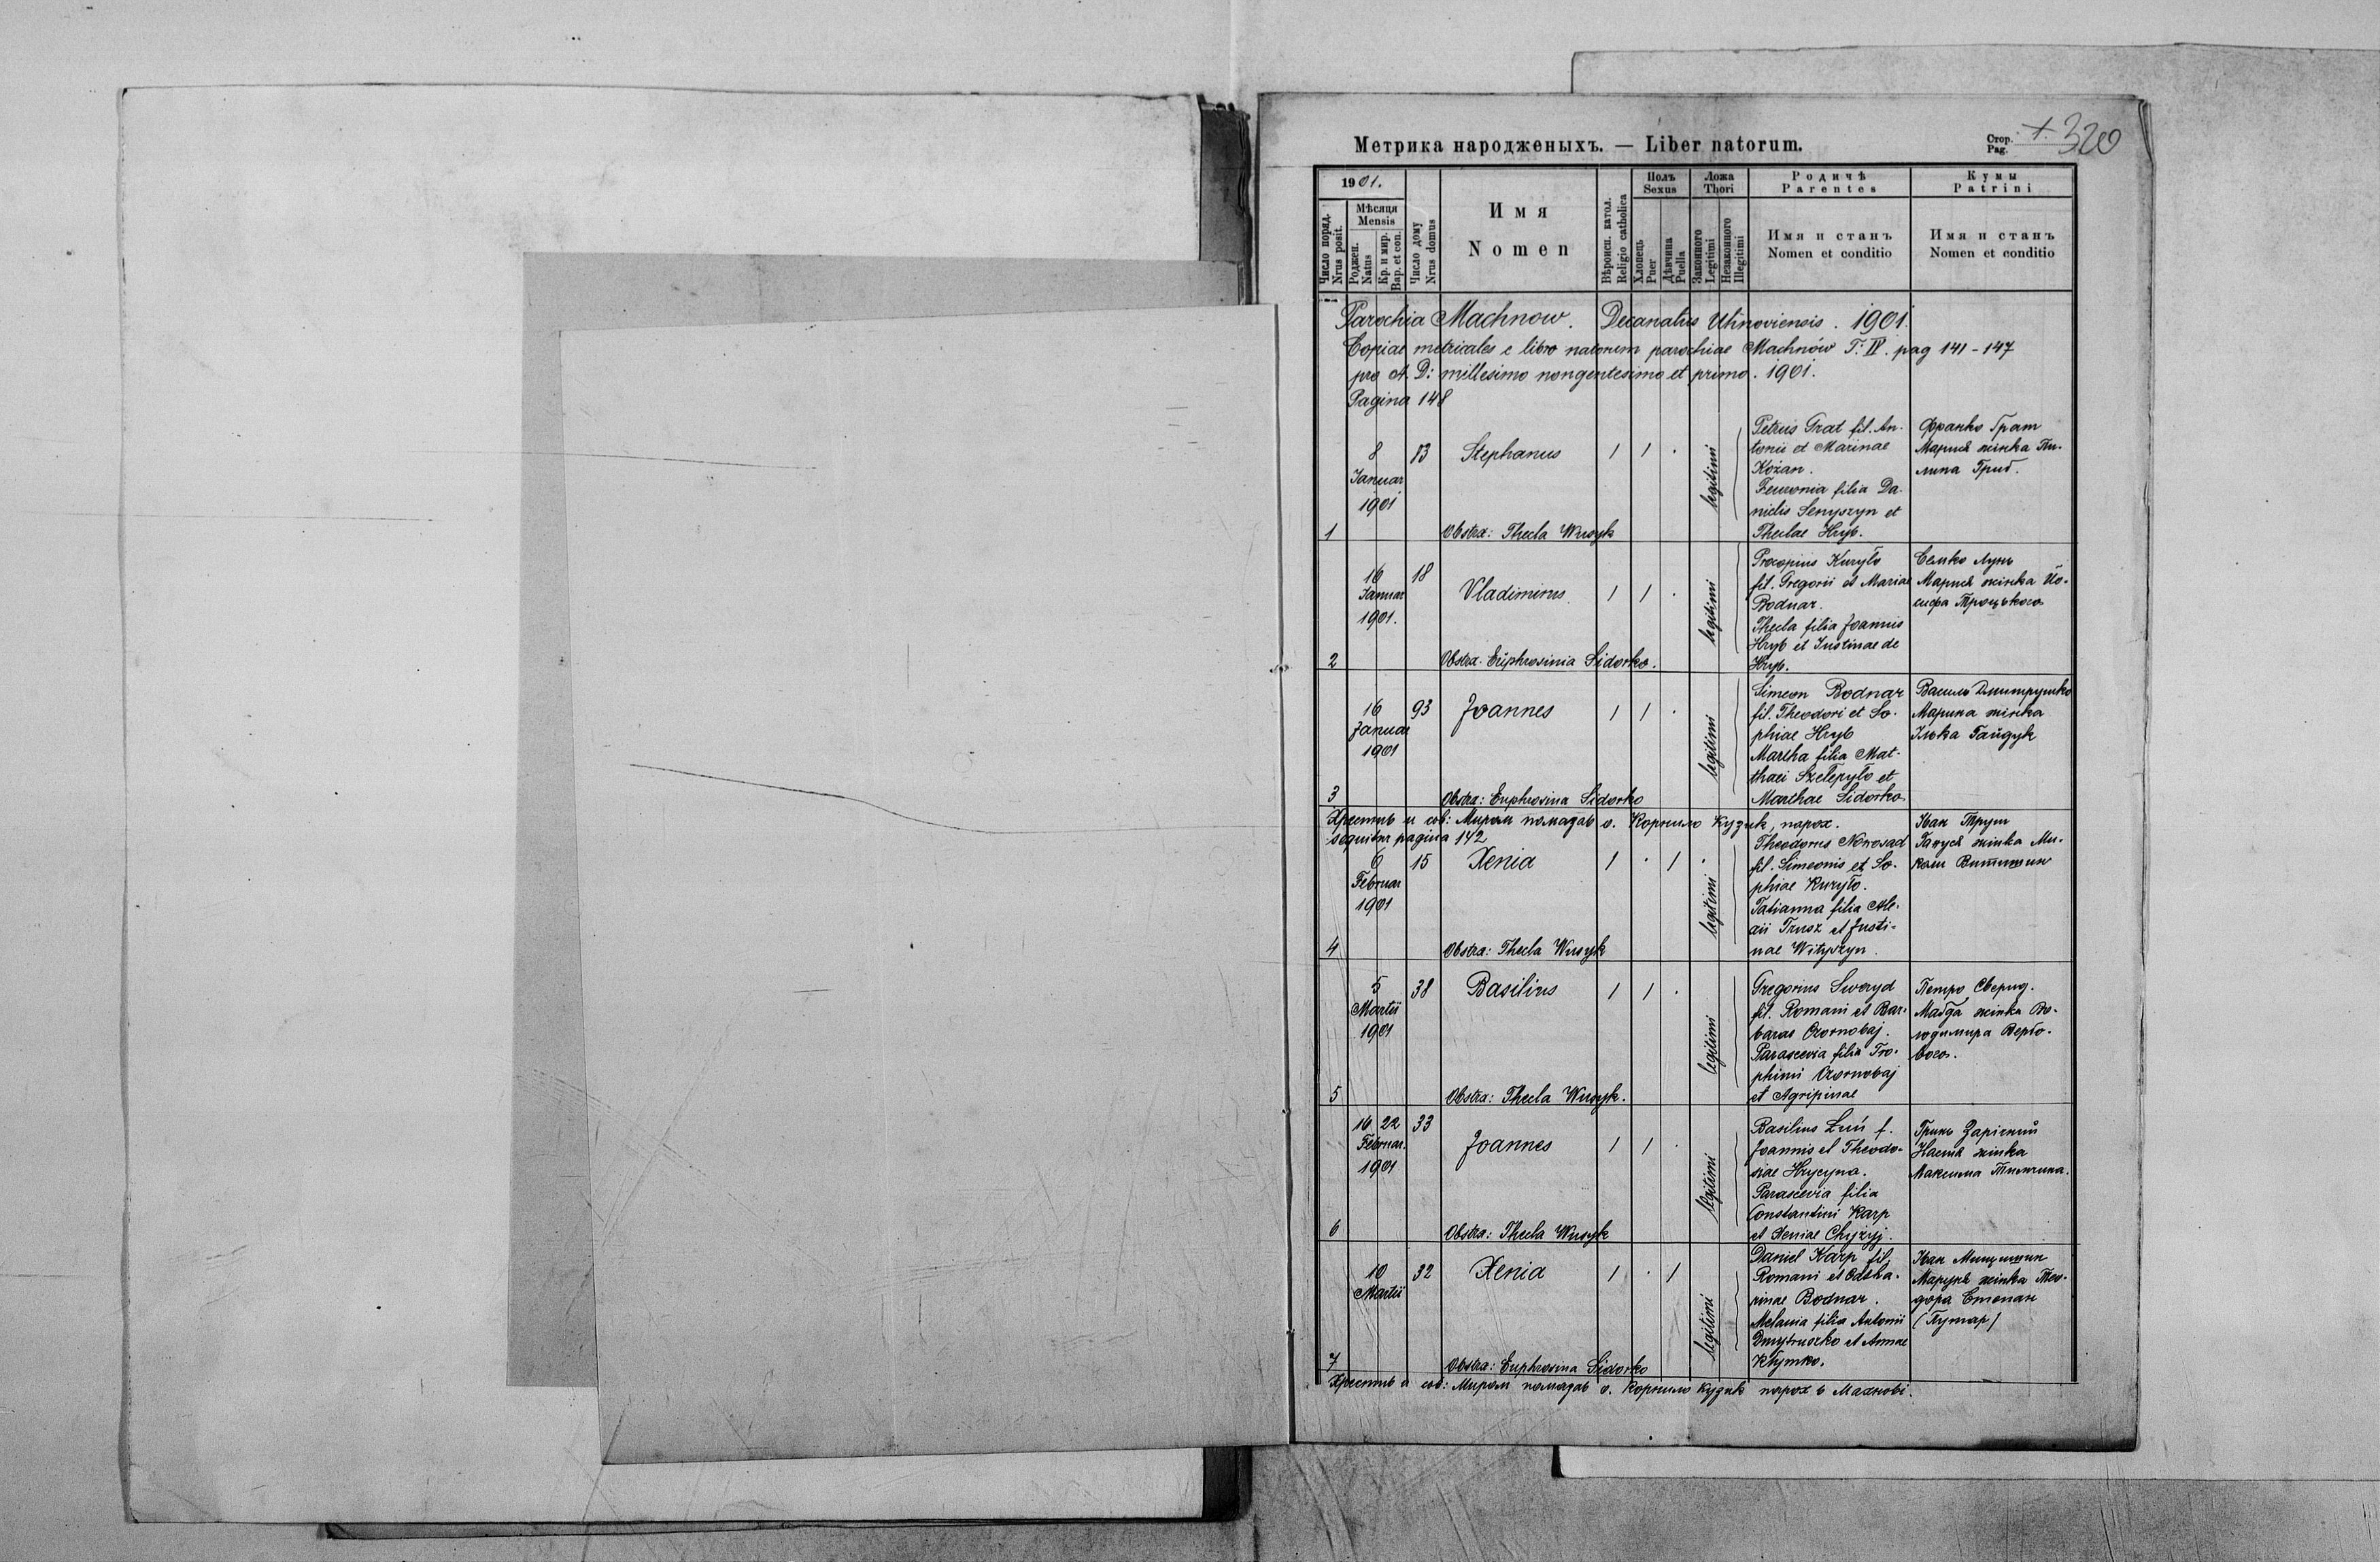 Метрика народженыхъ. — Liber natorum.
Стор. Pag. 320
1901.
Число поряд. Nrus posit.
Мѣсяця Mensis
Роджен. Natus
Кр. и мир. Bap. et con.
Число дому Nrus domus
Имя
Nomen
Вѣроисп. катол. Religio catholica
Полъ
Sexus
Хлопець Puer
Дѣвчина Puella
Ложа
Thori
Законного Legitimi
Незаконного Illegitimi
Родичѣ
Parentes
Имя и станъ
Nomen et conditio
Кумы
Patrini
Имя и станъ
Nomen et conditio
Parochia Machnow. Decanatus Uhnoviensis. 1901.
Copiae metricales e libro natorum parochiae Machnów T: IV. pag 141-147
pro A. D: millesimo nongentesimo et primo. 1901.
Pagina 148
1
8
Januar
1901
13
Stephanus
1 1 .
legitimi
Obstra: Thecla Wusyk
Petrus Grat fil. An-
tonii et Marinae
Kożan.
Fewronia filia Da-
nielis Senyszyn et
Theclae Hryb.
Франко Грат
Мария жінка Пи-
липа Гриб.
2
16
Januar
1901.
18
Vladimirus
1 1 .
legitimi
Obstra. Euphrosinia Sidorko.
Procopius Kuryło
fil. Gregorii et Mariae
Bodnar.
Thecla filia Joannis
Hryb et Justinae de
Hryb.
Семко Лунь
Мария жінка Йо-
сифа Троцького
3
16
Januar
1901
93
Joannes
1 1 .
legitimi
Obstra: Euphrosina Sidorko
Simeon Bodnar
fil. Theodori et So-
phiae Hryb
Martha filia Mat-
thaei Szełepyło et
Marthae Sidorko
Василь Дмитрушко
Марина жінка
Ілька Гайдук
Хрестив и св: Миром помазав о. Корнило Кудик, парох.
sequitur pagina 142
4
6
Februar
1901
15
Xenia
1 . 1 .
legitimi
Obstra: Thecla Wusyk
Theodorus Nowosad
fil. Simeonis et So-
phiae Kuryło.
Tatianna filia Ale-
xii Trusz et Justi-
nae Wityszyn.
Іван Труш
Гануся жінка Ми-
коли Витишин
5
5
Martii
1901
38
Basilius
1 1 .
legitimi
Obstra: Thecla Wusyk.
Gregorius Sweryd
fil. Romani et Bar-
barae Czornobaj.
Parascevia filia Tro-
phimi Czornobaj
et Agripinae
Петро Сверид.
Магда жінка Во-
лодимира Вербо-
вого.
6
16 22
Februar.
1901
33
Joannes
1 1 .
legitimi
Obstra: Thecla Wusyk
Basilius Łuń f.
Joannis et Theodo-
siae Hrycyna.
Parascevia filia
Constantini Karp
et Xeniae Chyżyj.
Гринь Зарічний
Настя жінка
Максима Тимчина.
7
10
Martii
32
Xenia
1 . 1
legitimi
Obstra: Euphrosina Sidorko
Daniel Karp fil.
Romani et Catha-
rinae Bodnar.
Melania filia Antonii
Dmytruszko et Annae
Kłymko.
Іван Мищишин
Маруся жінка Тео-
дора Степан
(Путар)
Хрестив и св: Миром помазав о. Корнило Кудик парох в Махнові.